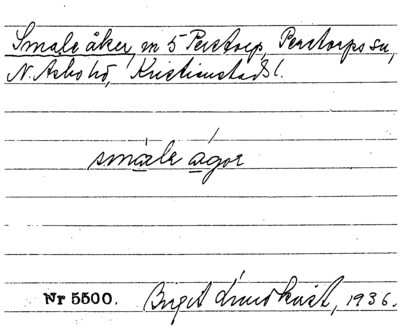 Smale åker, m 5 Perstorp, Perstorps sn,
N. Åsbo hd, Kristianstads l.
smále ágor
Nr 5500. Birgit Lundkvist, 1936.